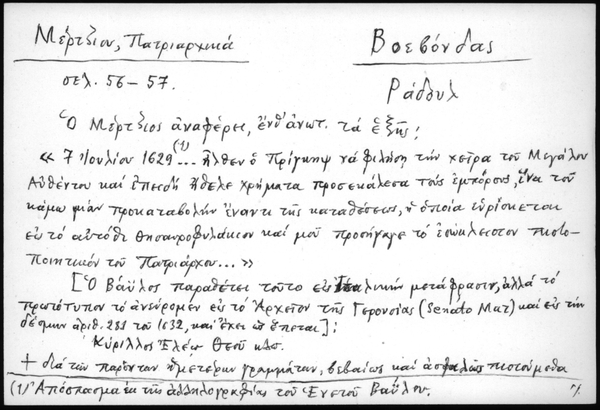 Μέρτζιου, Πατριαρχικά
Βοεβόνδας
σελ. 56–57.
Ράδουλ
Ὁ Μέρτζιος ἀναφέρει, ἔνθ' ἀνωτ. τὰ ἑξῆς:
« 7 Ἰουλίου 1629 (1)... ἦλθεν ὁ Πρίγκηψ νὰ φιλήσῃ τὴν χεῖρα τοῦ Μεγάλου
Αὐθέντου καὶ ἐπειδὴ ἤθελε χρήματα προσεκάλεσα τοὺς ἐμπόρους, ἵνα τοῦ
κάμω μίαν προκαταβολὴν ἔναντι τῆς καταθέσεως, ἡ ὁποία εὑρίσκεται
εἰς τὸ αὐτόθι θησαυροφυλάκιον καὶ μοῦ προσήγαγε τὸ ἐσώκλειστον πιστο-
ποιητικὸν τοῦ Πατριάρχου... »
[Ὁ Βάϋλος παραθέτει τοῦτο εἰς Ἰταλικὴν μετάφρασιν, ἀλλὰ τὸ
πρωτότυπον τὸ ἀνεύρομεν εἰς τὸ Ἀρχεῖον τῆς Γερουσίας (Senato Mar) καὶ εἰς τὴν
δέσμην ἀριθ. 281 τοῦ 1632, καὶ ἔχει ὡς ἕπεται]:
Κύριλλος Ἐλέῳ Θεοῦ κλπ.
+ διὰ τῶν παρόντων ἡμετέρων γραμμάτων, βεβαίως καὶ ἀσφαλῶς πιστούμεθα
(1) Ἀπόσπασμα ἐκ τῆς ἀλληλογραφίας τοῦ Ἐνετοῦ Βαΐλου.